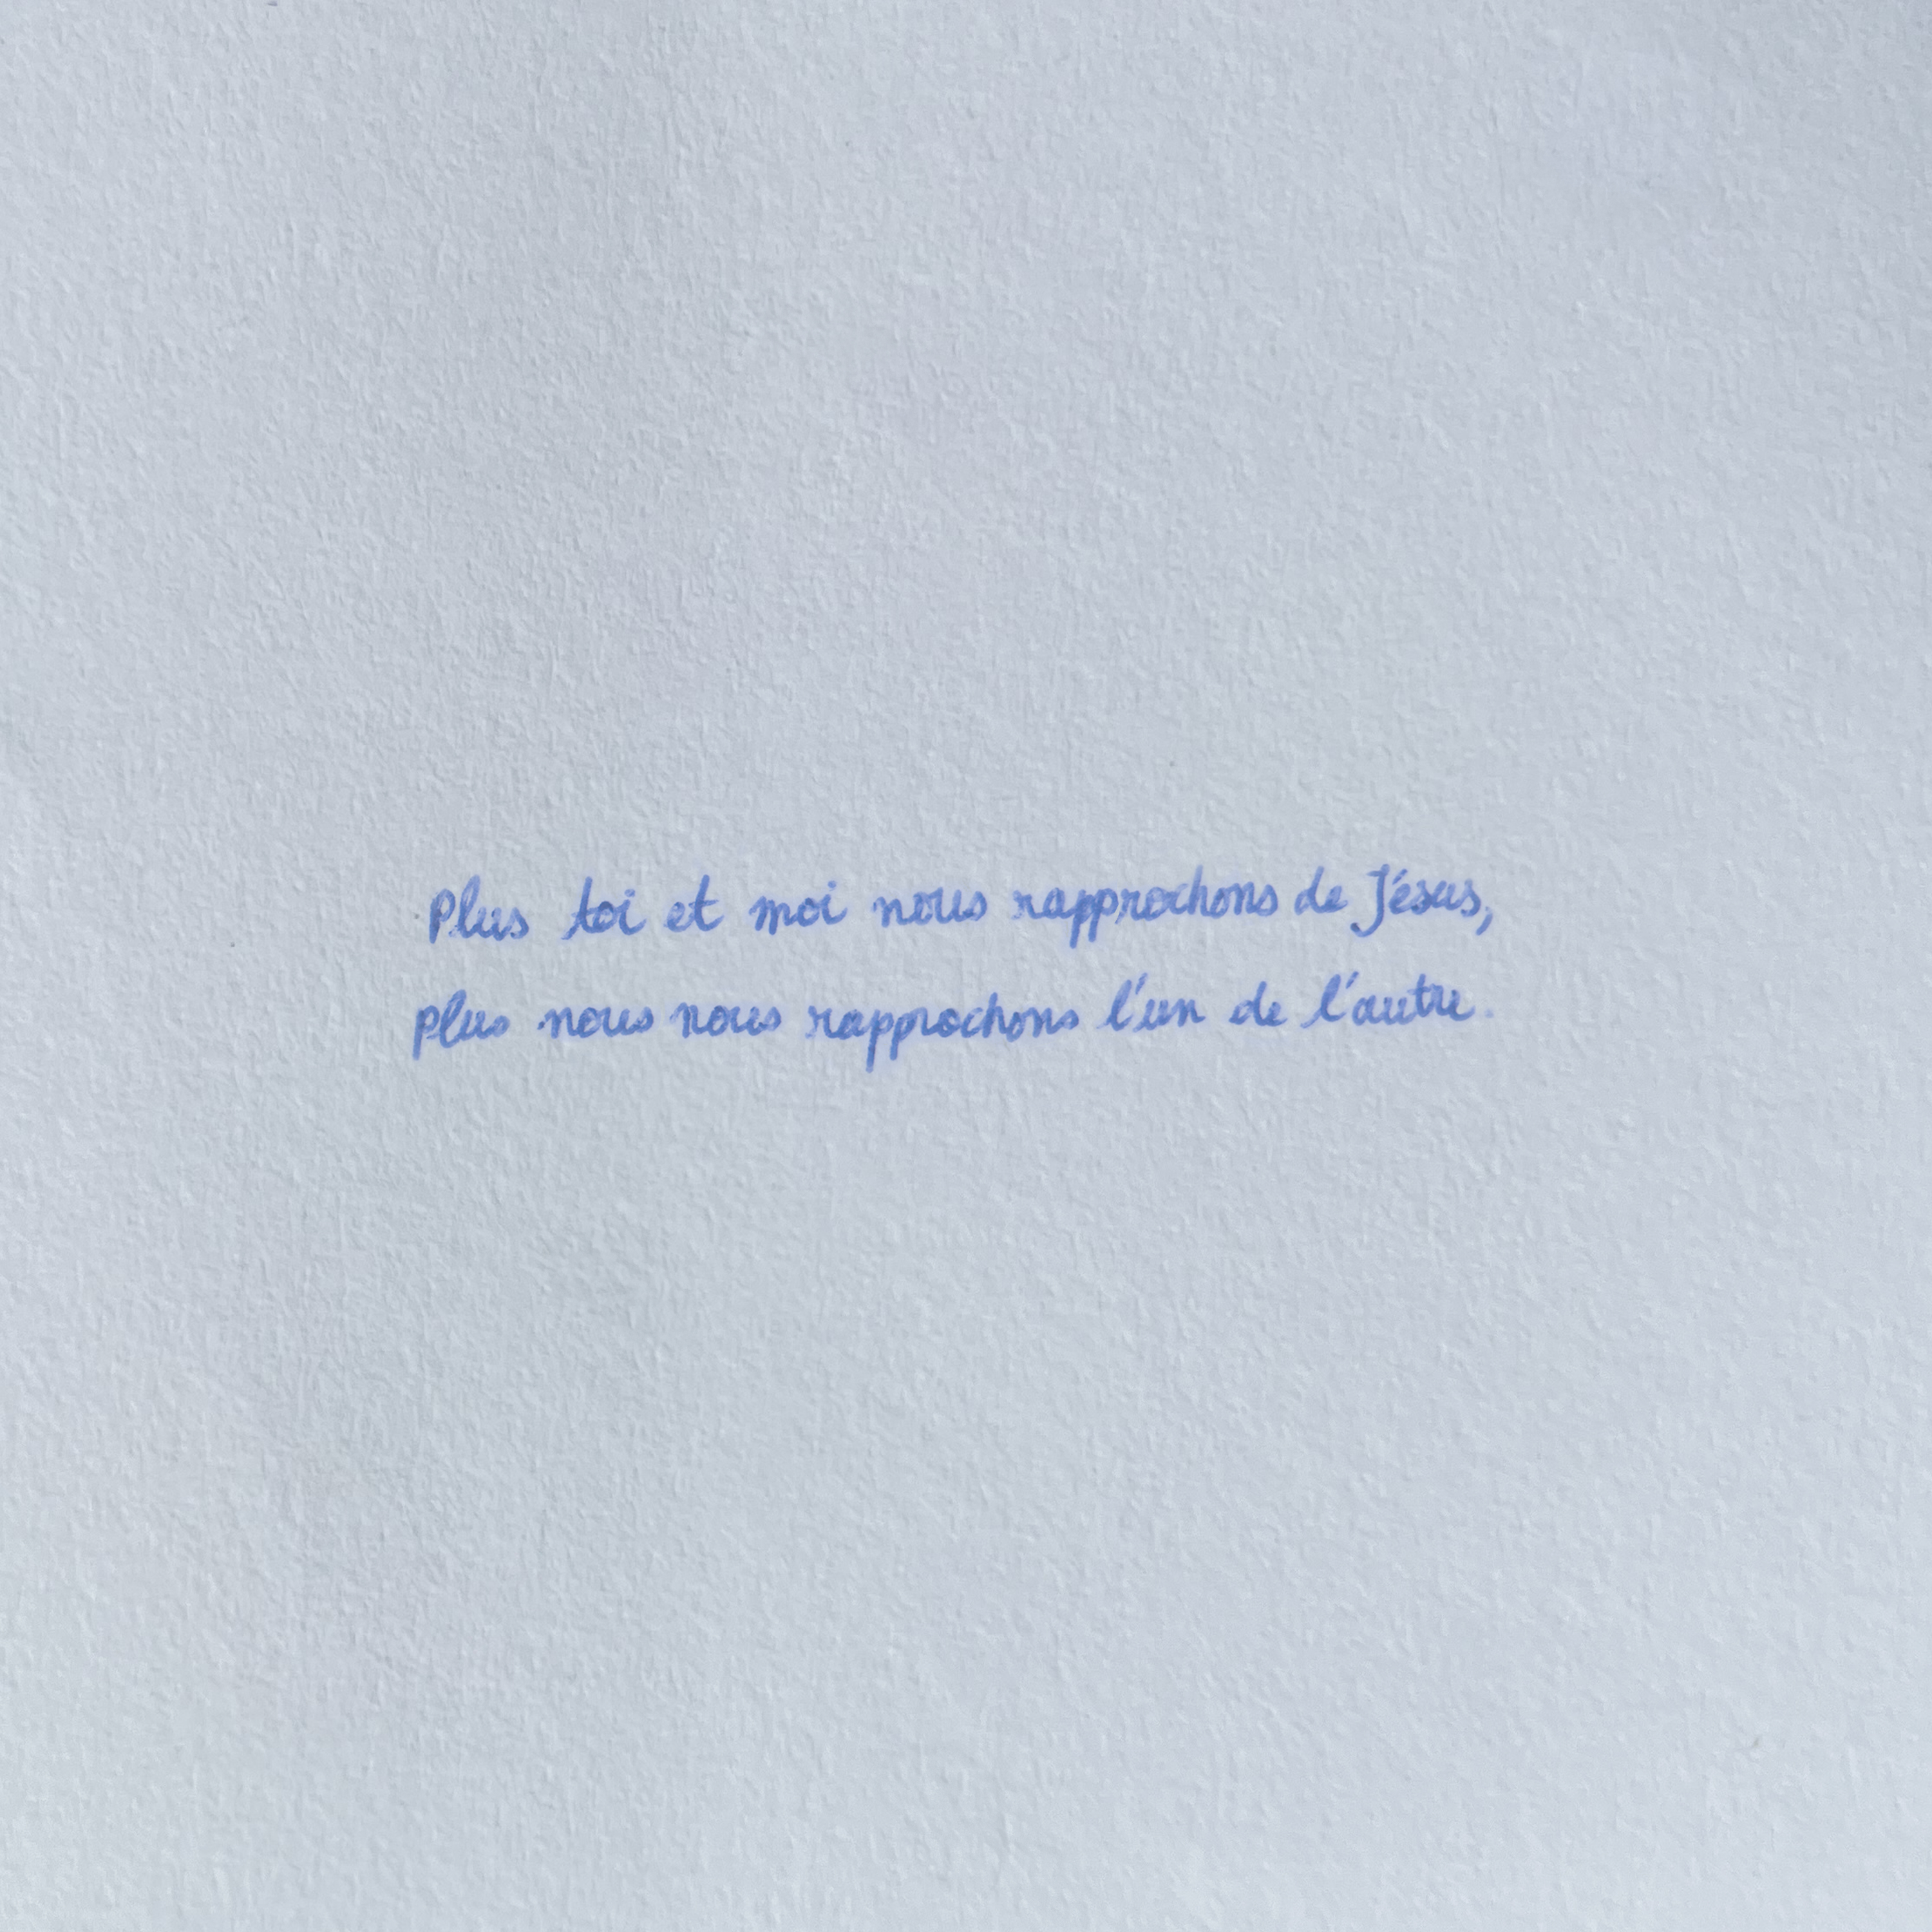 Plus toi et moi nous rapprochons de Jésus,
plus nous nous rapprochons l'un de l'autre.